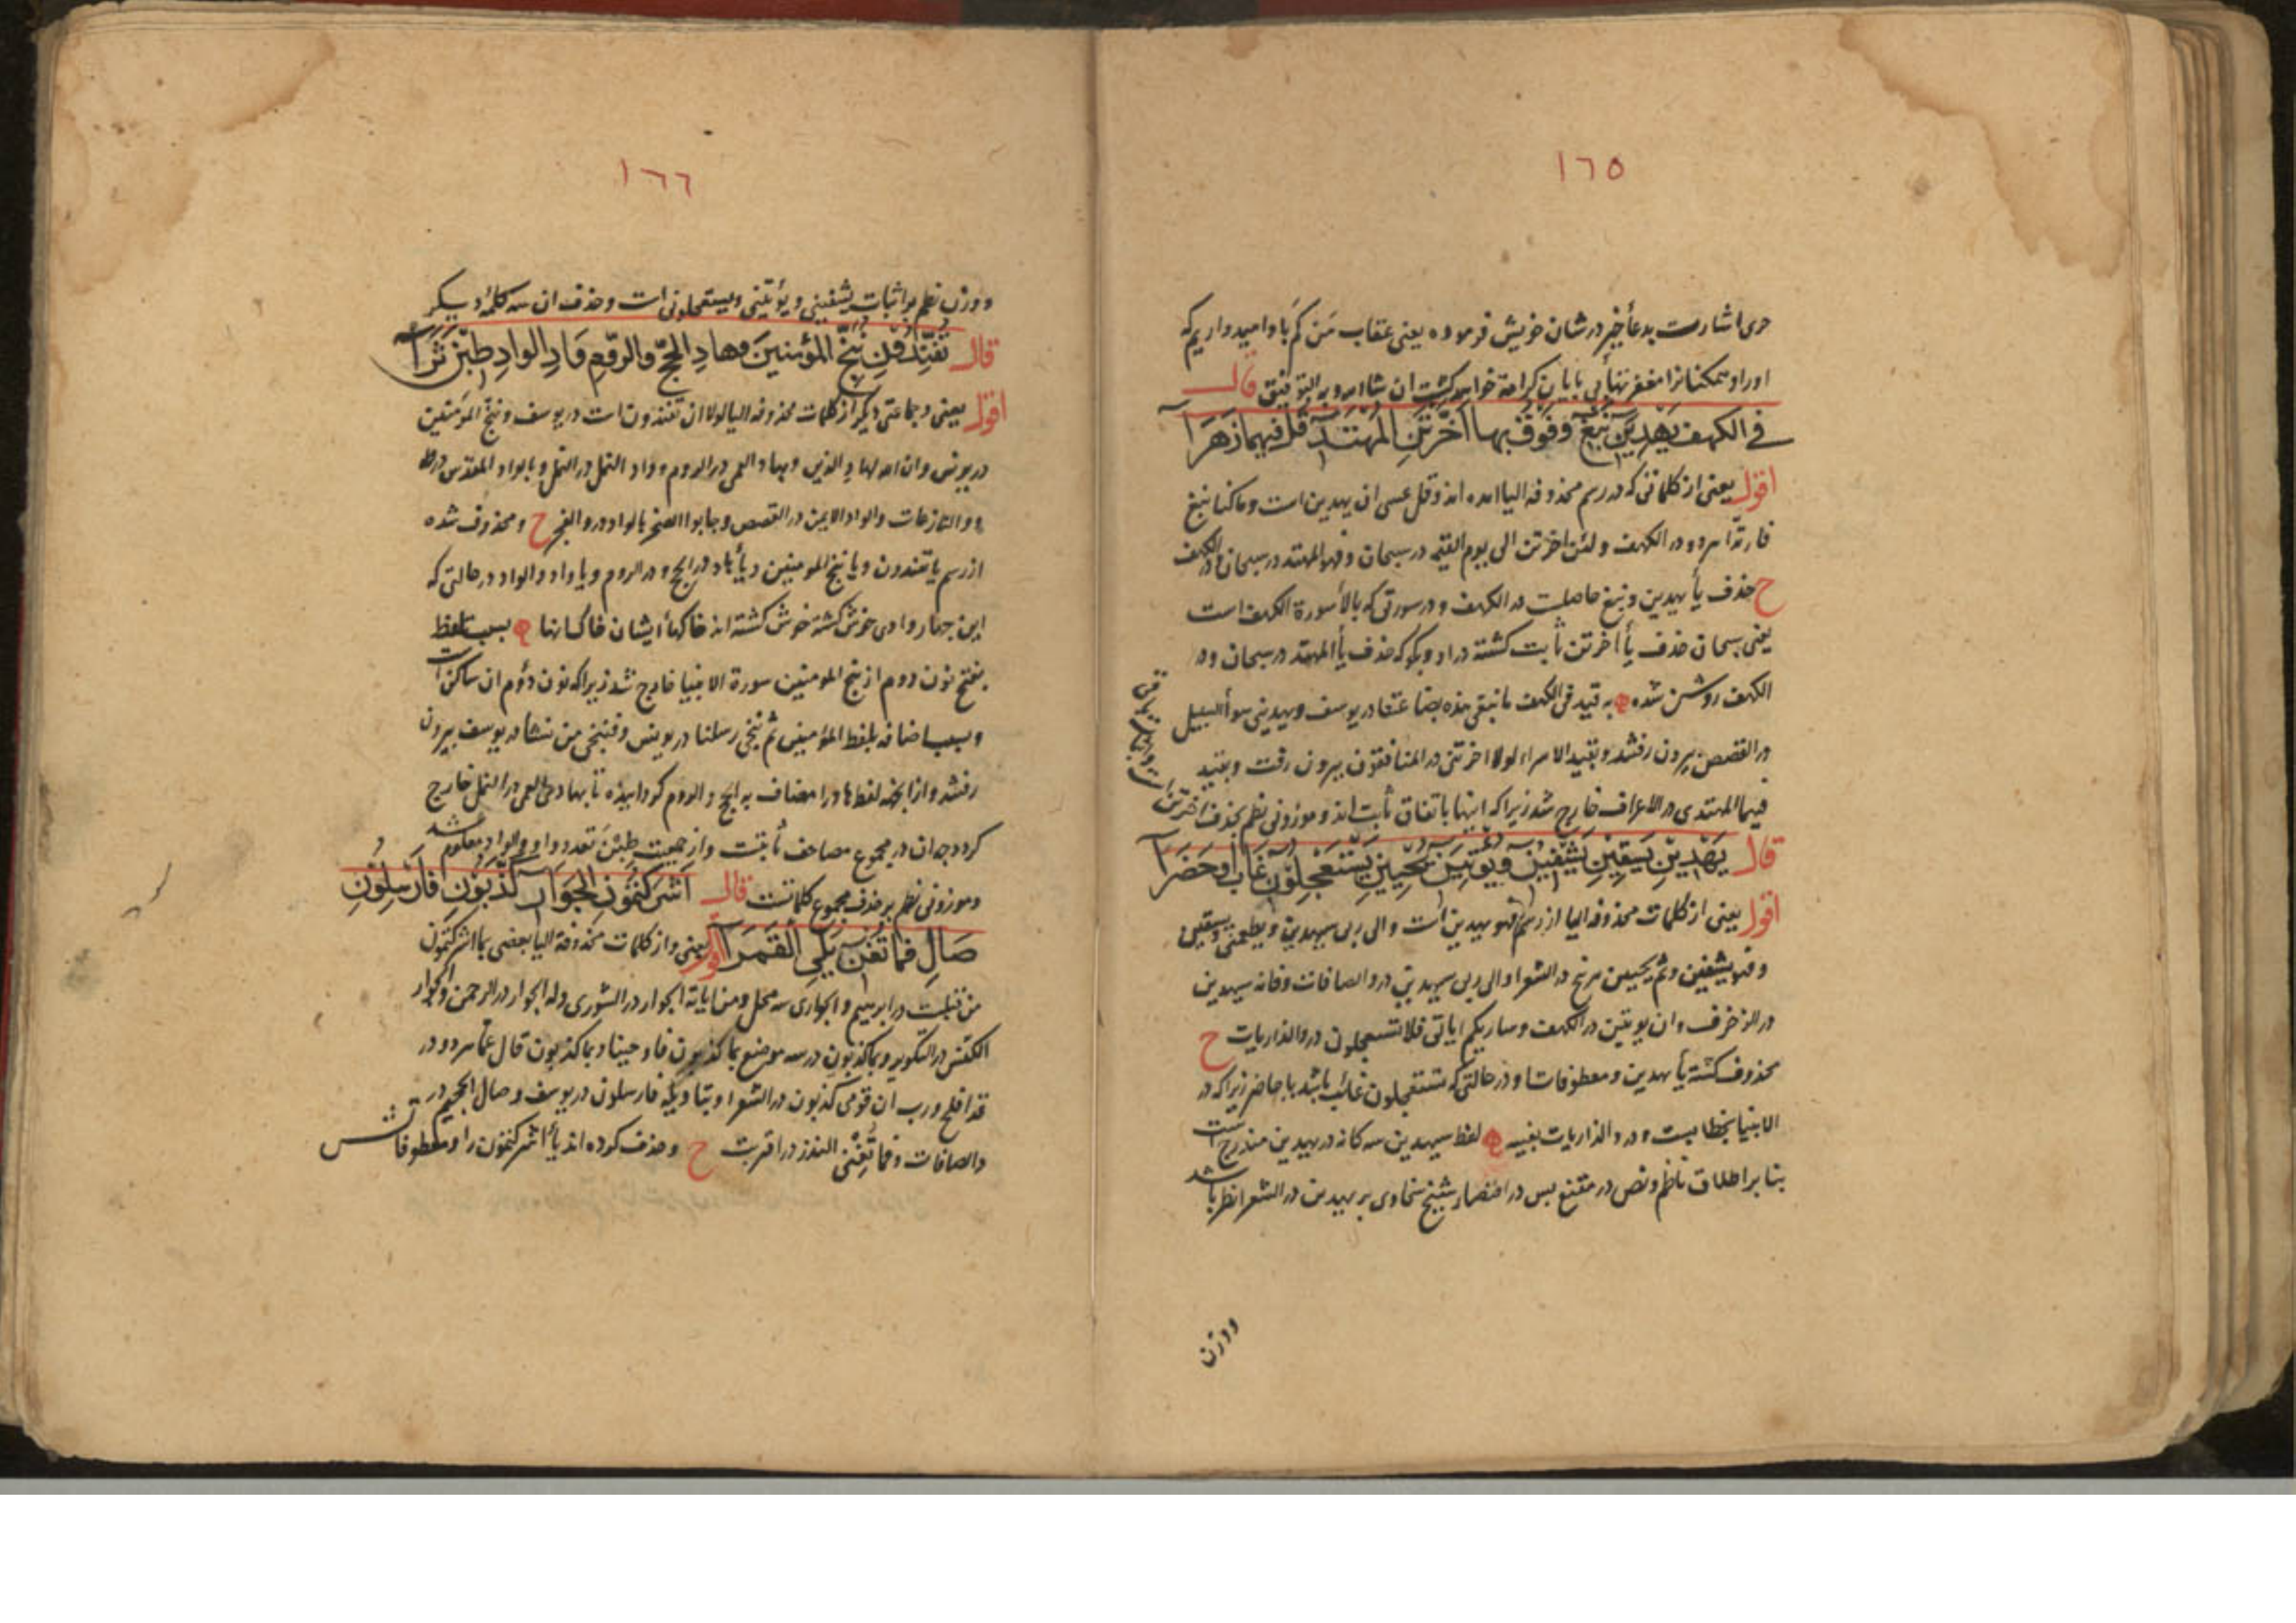 ١٦٥
حری اشارت بدعأ خیر در شان خویش فرموده یعنی عقاب من کم با او امیدواریم که
اورا و ممکنانرا مغفر تهایی بایان کرامة خواهد کشت ان شاالله و بربه التوفیق قال
في الكهف يهدين نبغ وفوق بها اخرتن المهتد قل فيهما زهرا
اقول یعنی از کلماتی که در رسم محذوفه الیا امده اند و قل عسی ان یهدین است و ماکنا نبغ
فارتدا مردو در الکهف و لئن اخرتن الی یوم القیمه در سبحان و فهو المهتد در سبحان و در الکهف
ح حذف یأ یهدین و نبغ حاصلست در الکهف و در سورتی که بالأ سورة الکهف است
یعنی سبحان حذف یأ اخرتن ثابت کشته در او و بکو که حذف یأ المهتد در سبحان و در
الکهف روشن شده به قید فی الکهف ما نبغی هذه بضاعتنا در یوسف و یهدینی سوأ السبیل
در القصص بیرون رفتند و بقید الاسراء لولا اخرتنی در المنافقون بیرون رفت و بقید
فیهما المهتدی در الاعراف خارج شد زیرا که اینها باتفاق ثابت اند و موزونی نظم بحذف اخرتن
قال يهدين يسقين يشفين ويؤتين يحيين يستعجلون غاب او حضرا
اقول یعنی از کلمات محذوفه الیا از رسم فهو یهدین است و الی ربی سیهدین و یطعمنی و یسقین
و فهو یشفین و ثم یحیین مرنج در الشعرا و الی ربی سیهدین در و الصافات و فانه سیهدین
در الزخرف و ان یوتین در الکهف و ساریکم ایاتی فلا تستعجلون در و الذاریات ح
محذوف کشته یأ یهدین و معطوفاتا و در حالتی که تستعجلون غائب باشد یا حاضر زیرا که در
الانبیا بخطابست و در و الذاریات بغیبه لفظ سیهدین سه کانه در یهدین مندرج است
بنا بر اطلاق ناظم و نص در مقنع بس در اختصار شیخ سخاوی بر یهدین در الشعرا نظر باشد
ووزن
١٦٦
ووزن نظم بر اثبات یشفینی و یؤتینی و یستعجلونی است و حذف ان سه کلمه دیکر
قال تفندون ننج المؤمنين وهاد الحج والروم واد الواد طبن ثرا
اقول یعنی و جماعتی دیکر از کلمات محذوفه الیا لولا ان تفندون است در یوسف و ننج المؤمنین
در یونس و ان الله لهاد الذین و بهاد العمی در الروم و واد النمل در النمل و بالواد المقدس در طه
و والنازعات و الواد الایمن در القصص و جابوا الصخر بالواد در و الفجر ح و محذوف شده
از رسم یا تفندون و یا ننج المومنین و یأ هاد در الحج و در الروم و یا واد و الواد در حالتی که
این چهار وادی خوش کشته خوش کشته اند خاکهأ ایشان خاکسارنها بسبب تلفظ
بفتح نون دوم از ننج المومنین سورة الانبیا خارج شد زیرا که نون دؤم ان ساکن است
و بسبب اضافه بلفظ المؤمنین ثم ننجی رسلنا در یونس و فننجی من نشا در یوسف بیرون
رفتند و از انجه لفظ هاد را مضاف به الحج و الروم کردانیده تا بهادی العمی در النمل خارج
کردد چه ان در مجموع مصاحف ثابتست و از جمعیت طبن تعدد واد و الواد معلوم شد
و موزونی نظم بر حذف مجموع کلماتست قال اشركتمون الجوار كذبون فارسلون
صال فما تغن يلي القمرا اقول یعنی و از کلمات محذوفة الیا بعضی بما اشرکتمون
من قبلست در ابرهیم و الجواری سه محل و من ایاته الجوار در الشوری و له الجوار در الرحمن و الجوار
الکنس در التکویر و بما کذبون در سه موضع بما کذبون فاوحینا و بما کذبون قال عما مردو در
قد افلح و رب ان قومی کذبون در الشعرا و بتاویله فارسلون در یوسف و صال الجحیم در
والصافات و فما تغن النذر در اقتربت ح و حذف کرده اند یأ اشرکتمون را و معطوفاتش